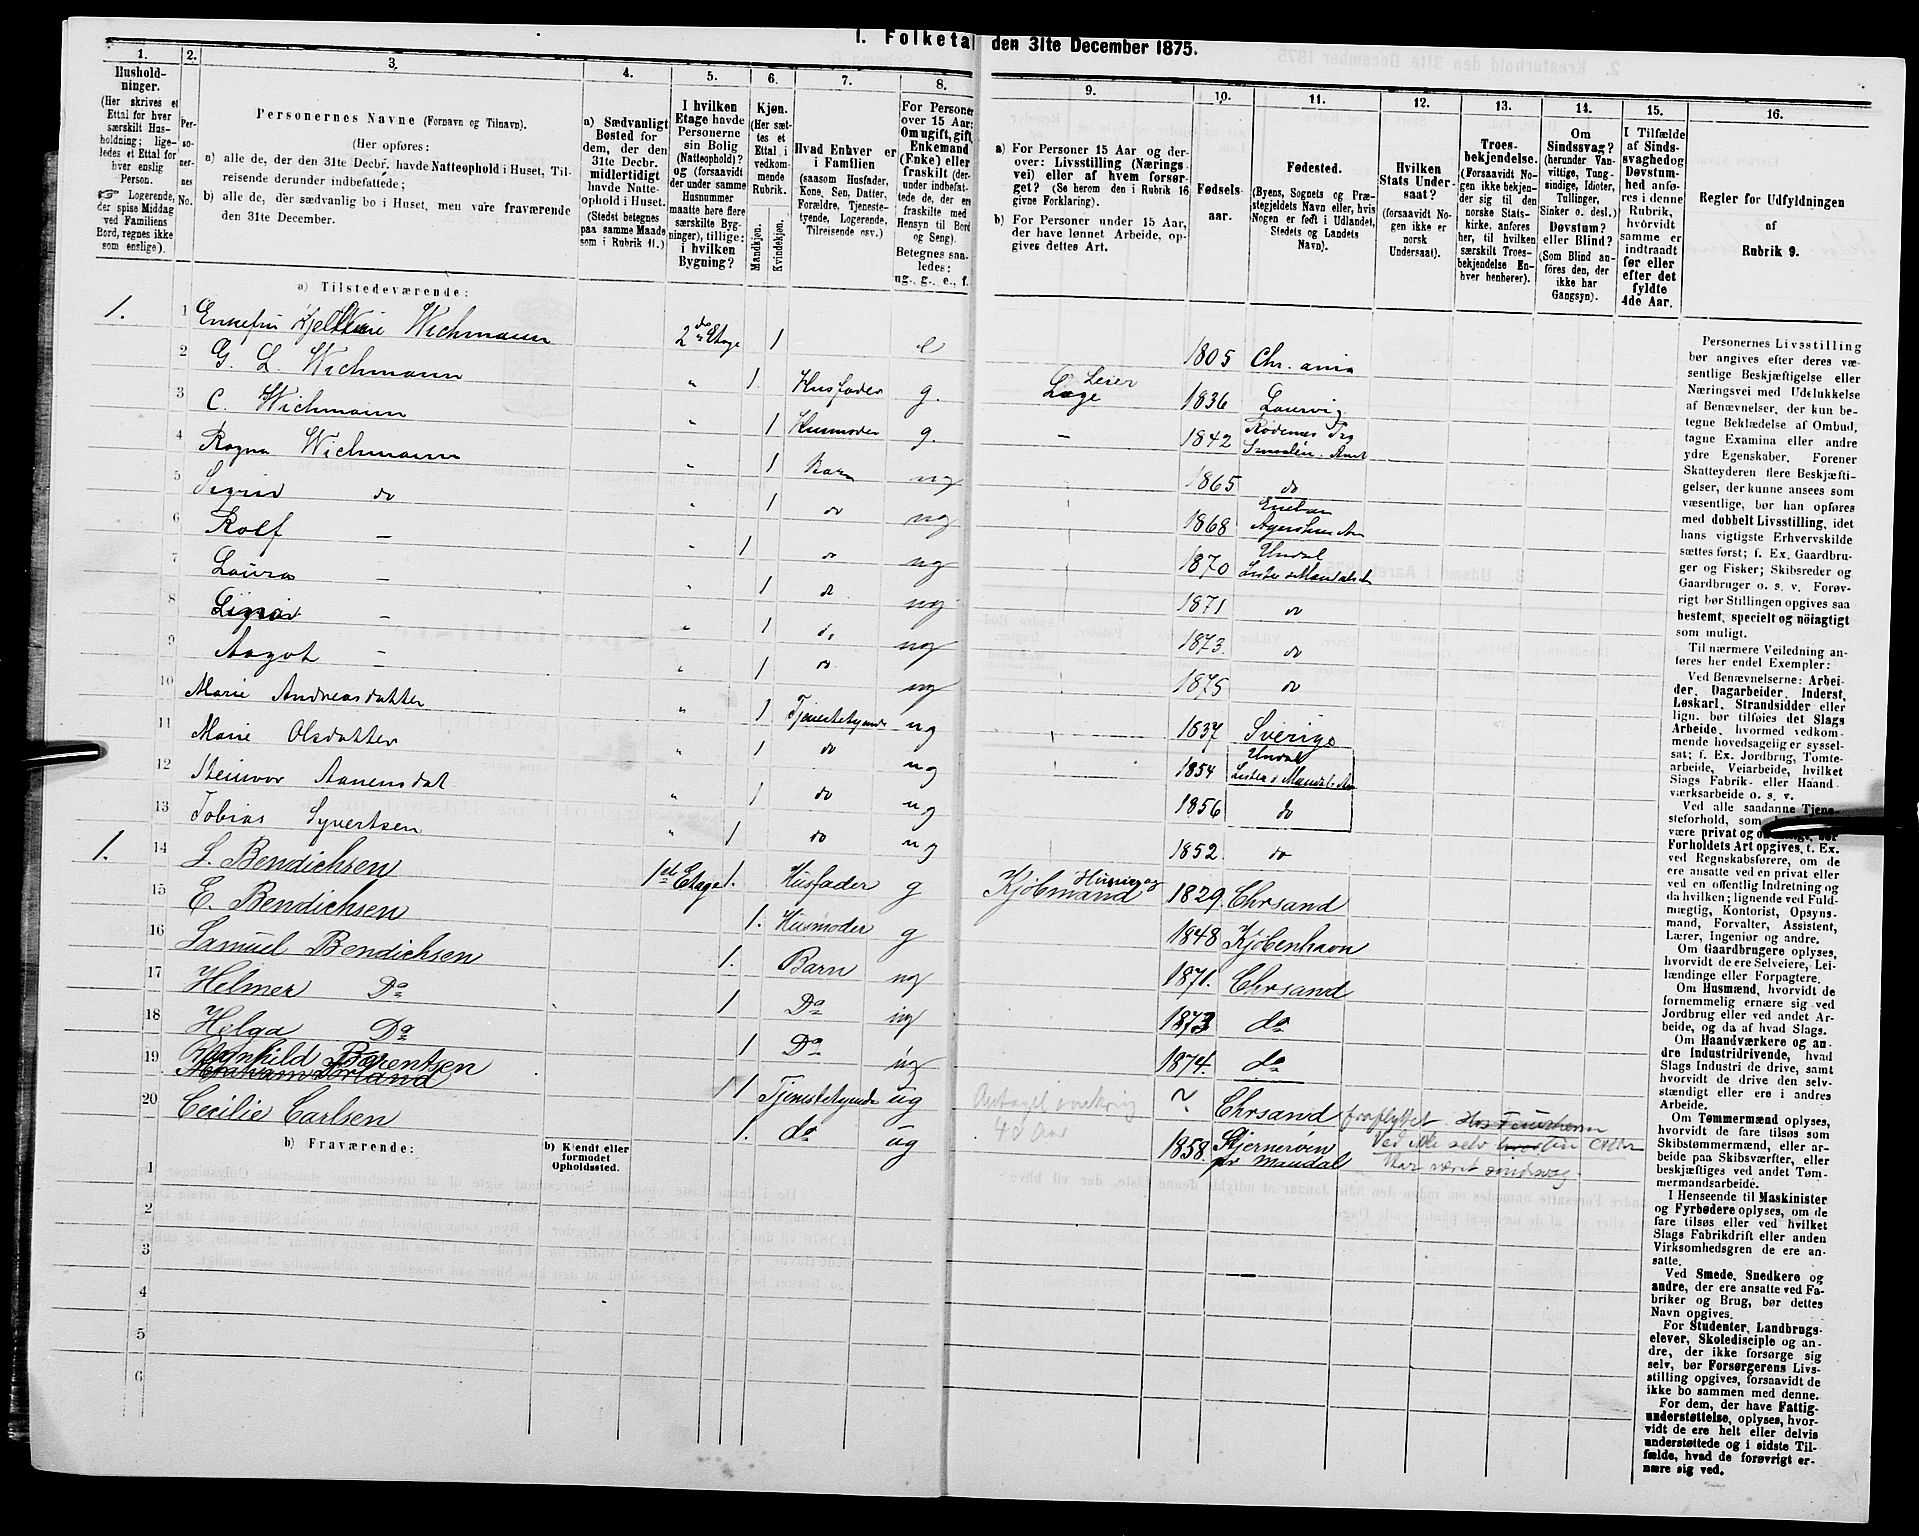 1. Folketal den 31te December 1875.
1.
Hushold-
ninger.
(Her skrives et
Ettal for hver
særskilt Hus-
holdning; lige-
ledes et Ettal for
hver enslig
Person.
☞ Logerende,
der spise Middag
ved Familiens
Bord, regnes ikke
som enslige).
2.
Per-
so-
ner-
nes
No.
3.
Personernes Navne (Fornavn og Tilnavn).
(Her opføres:
a) alle de, der den 31te Decbr. havde Natteophold i Huset, Til-
reisende derunder indbefattede;
b) alle de, der sædvanlig bo i Huset, men vare fraværende
den 31te December.
4.
a) Sædvanligt
Bosted for
dem, der den
31te Decbr.
midlertidigt
havde Natte-
ophold i Huset.
(Stedet betegnes
paa samme Maade
som i Rubrik 11.)
5.
I hvilken
Etage havde
Personerne
sin Bolig
(Natteophold)?
og (forsaavidt
der under samme
Husnummer
maatte høre flere
særskilte Byg-
ninger), tillige:
i hvilken
Bygning?
6.
Kjøn.
(Her sæt-
tes et
Ettal i
vedkom-
mende
Rubrik.
Mandkjøn.
Kvindekjøn.
7.
Hvad Enhver er
i Familien
(saasom Husfader,
Kone, Sen, Datter,
Forældre, Tjeneste-
tyende, Logerende,
Tilreisende osv.).
8.
For Personer
over 15 Aar:
Om ugift, gift,
Enkemand
(Enke) eller
fraskilt (der-
under indbefat-
tede de, der ere
fraskilte med
Hensyn til Bord
og Seng).
Betegnes saa-
ledes:
ug., g., e., f.
9.
a) For Personer 15 Aar og der-
over: Livsstilling (Nærings-
vei) eller af hvem forsør-
get? (Se herom den i Rubrik 16
givne Forklaring).
b) For Personer under 15 Aar,
der have lønnet Arbeide, op-
gives dettes Art.
10.
Fødsels-
aar.
11.
Fødested.
(Byens, Sognets og Præ-
stegjeldets Navn eller, hvis
Nogen er født i Udlandet,
Stedets og Landets
Navn).
12.
I hvilken
Stats Under-
saat?
(forsaavidt No-
gen ikke er
norsk
Undersaat).
13.
Troes-
bekjendelse.
(Forsaavidt No-
gen ikke bekjen-
der sig til den
norske Stats-
kirke, anføres
her, til hvilken
særskilt Troes-
bekjendelse En-
hver henhører).
14.
Om
Sindssvag?
(herunder Van-
vittige, Tung-
sindige, Idioter,
Tullinger,
Sinker o. desl.)
Døvstum?
eller Blind?
(Som Blind an-
føres den, der
ikke har
Gangsyn).
15.
I Tilfælde
af Sinds-
svaghed og
Døvstum-
hed anfø-
res i denne
Rubrik,
hvorvidt
samme er
indtraadt
før eller
efter det
fyldte
4de Aar.
16.
Regler for Udfyldningen
af
Rubrik 9.
a) Tilstedeværende:
1. 1 Enkefru Wichmann 2den Etage 1 e 1805 Chr.ania
2 G. L. Wichmann " 1. Husfader g. Læge 1836 Laurvig
3 C. Wichmann " 1 Husmoder g. - 1842 Rødenes Prg Smaalen. Amt
4 Ragna Wichmann " 1 Barn ug 1865 do
5 Sigrid do " 1 do ug 1868 Eneba Agershus Am
6 Rolf - " 1 do ug 1870 Undal Lister & Mandals
7 Laura - " 1 do ug 1871 do
8 - " 1 do ug 1873. do
9 Aagot - " 1 do ug 1875 do
10 Marie Andreasdatter " 1 Tjenestetyende ug 1837 Sverige
11 Marie Olsdatter " 1 do ug 1854 Undal Lister & Mandals Am
12 Steinvor Aanensdat " 1 do ug 1856 do
13 Tobias Syvertsen " 1 do ug 1852. do
1. 14 S. Bendichsen 1ste Etage 1. Husfader g Kjøbmand 1829. Chrsand
15 E. Bendichsen 1. Husmoder g 1848 Kjøbenhavn
16 Samuel Bendichsen 1. Barn ug 1871. Chrsand
17 Helmer Do 1 Do ug 1873 do
18 Helga Do 1 Do ug 1874. do
19 Ragnhild Berentsen 1 1 Tjenestetyende ug Antagel omkring 40 Aar ? Chrsand fraflyttet
20 Cecilie Carlsen 1. do ug 1858. Skjernøen pr Mandal
b) Fraværende:
b) Kjendt eller
formodet
Opholdssted.
1
2
3
4
5
6
Personernes Livsstilling
bør angives efter deres væ-
sentlige Beskjæftigelse eller
Næringsvei med Udelukkelse
af Benævnelser, der kun be-
tegne Beklædelse af Ombud,
tagne Examina eller andre
ydre Egenskaber. Forener
Skatteyderen flere Beskjæfti-
gelser, der kunne ansees som
væsentlige, bør han opføres
med dobbelt Livsstilling, idet
hans vigtigste Erhvervskilde
sættes først; f. Ex. Gaardbru-
ger og Fisker; Skibsreder og
Gaardbruger o. s. v. Forøv-
rigt bør Stillingen opgives saa
bestemt, specielt og nöiagtigt
som muligt.
Til nærmere Veiledning an-
føres her endel Exempler:
Ved Benævnelserne: Arbei-
der, Dagarbeider, Inderst,
Løskarl, Strandsidder eller
lign. bør tilføies det Slags
Arbeide, hvormed vedkom-
mende hovedsagelig er syssel-
sat; f. Ex. Jordbrug, Tomte-
arbeide, Veiarbeide, hvilket
Slags Fabrik- eller Haand-
værksarbeide o. s. v.
Ved alle saadanne Tjene-
steforhold, som
være privat og
Forholdets Art opgives, t. Ex.
ved Regnskabsførere, om de
ere ansatte ved en privat eller
ved en offentlig Indretning og
da hvilken; lignende ved Fuld-
mægtig, Kontorist, Opsyns-
mand, Forvalter, Assistent,
Lærer, Ingeniør og andre.
Om Gaardbrugere oplyses,
hvorvidt de ere Selveiere, Lei-
lændinge eller Forpagtere.
Om Husmænd, hvorvidt de
fornemmelig ernære sig ved
Jordbrug eller ved andet Ar-
beide, og da af hvad Slags.
Om Haandværkere og an-
dre Industridrivende, hvad
Slags Industri de drive, samt
hvorvidt de drive den selv-
stændigt eller ere i andres
Arbeide.
Om Tømmermænd oplyses,
hvorvidt de fare tilsøs som
Skibstømmermænd, eller ar-
beide paa Skibsværfter, eller
beskjæftiges ved andet Tøm-
mermandsarbeide.
I Henseende til Maskinister
og Fyrbødere oplyses, om de
fare tilsøs eller ved hvilket
Slags Fabrikdrift eller anden
Virksomhedsgren de ere an-
satte.
Ved Smede, Snedkere og
andre, der ere ansatte ved Fa-
briker og Brug, bør dettes
Navn opgives.
For Studenter, Landbrugs-
elever, Skoledisciple og an-
dre, der ikke forsørge sig
selv, bør Forsørgerens Livs-
stilling opgives, forsaavidt de
ikke bo sammen med denne.
For dem, der have Fattig-
understøttelse, oplyses, hvor-
vidt de ere helt eller delvis
understøttede og i sidste Til-
fælde, hvad de forøvrigt er-
nære sig ved.